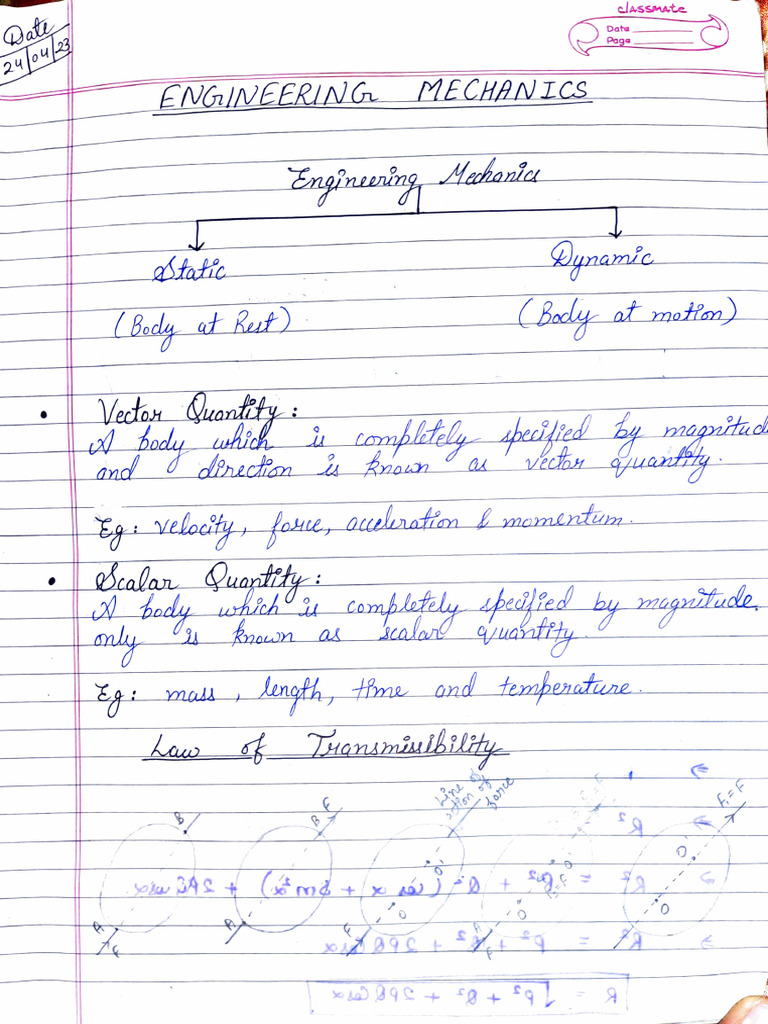 Date
24/04/23
classmate
Date
Page
ENGINEERING MECHANICS
Engineering Mechanics
Static Dynamic
(Body at Rest) (Body at motion)
• Vector Quantity :
A body which is completely specified by magnitud
and direction is known as vector quantity.
Eg : velocity, force, acceleration & momentum.
• Scalar Quantity :
A body which is completely specified by magnitude.
only is known as scalar quantity.
Eg : mass, length, time and temperature.
Law of Transmissibility
B B F Line of action of force F₁ = F
O' O' O'
O O O
A F A F A F